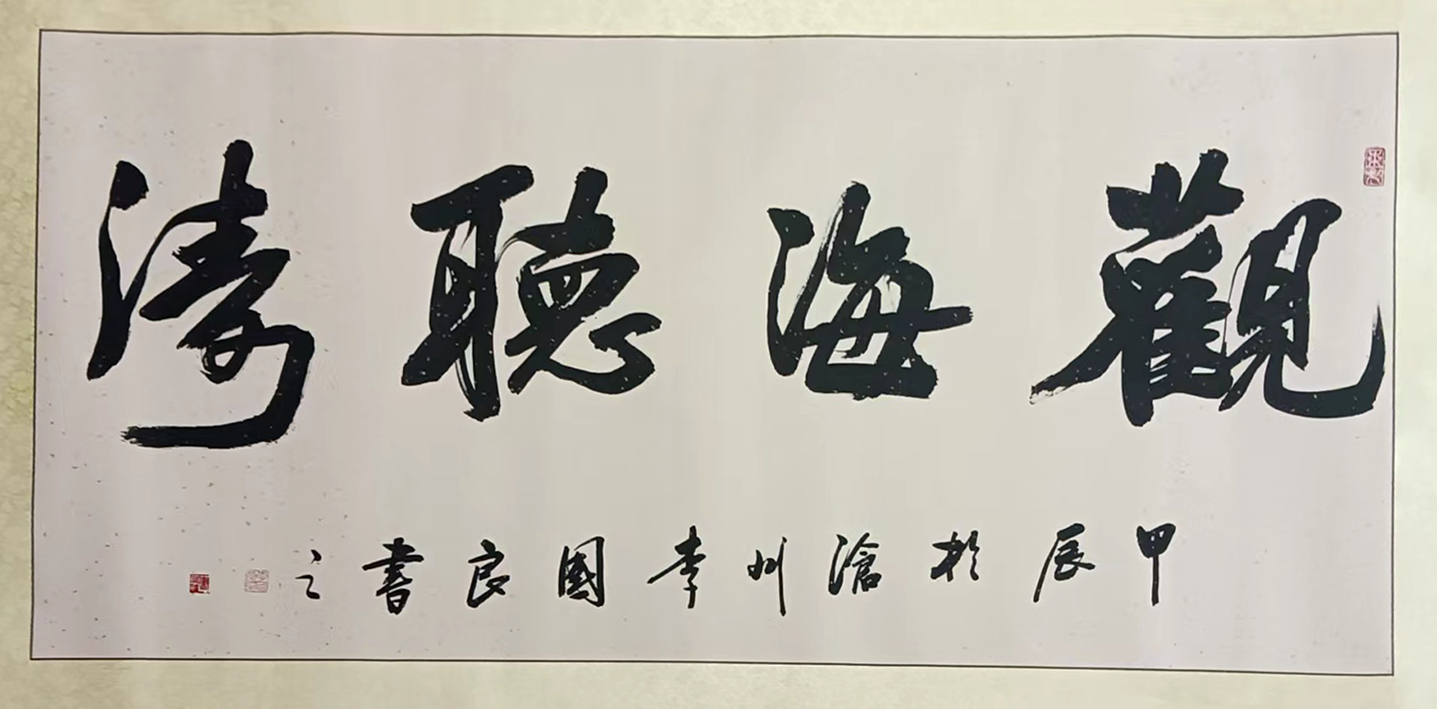 觀海聽濤
甲辰於滄州李國良書之